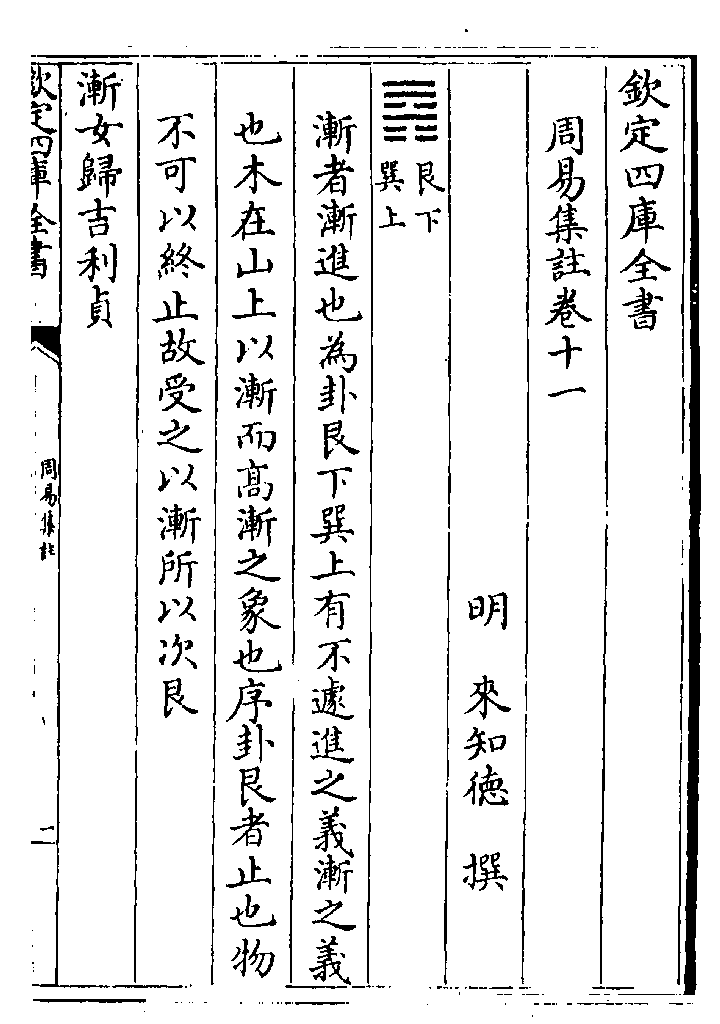 欽定四庫全書
周易集註卷十一
明　來知德　撰
䷴
艮下
巽上
漸者漸進也為卦艮下巽上有不遽進之義漸之義
也木在山上以漸而高漸之象也序卦艮者止也物
不可以終止故受之以漸所以次艮
漸女歸吉利貞
欽定四庫全書
周易集註
一